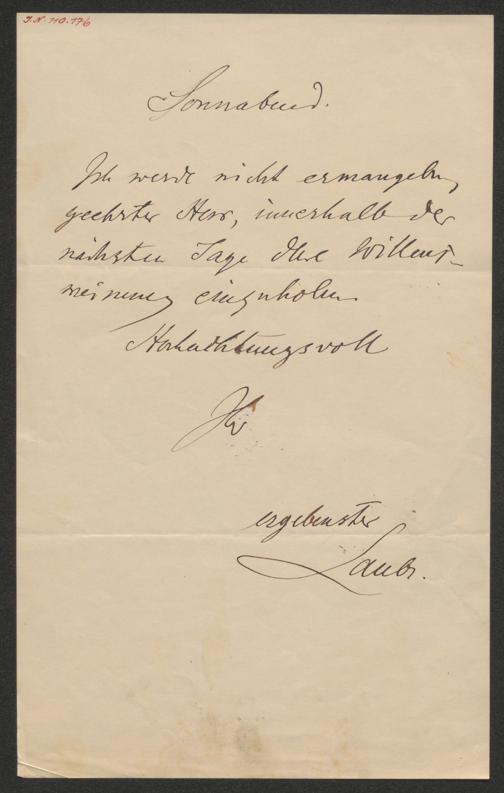 J.N. 110.176
Sonnabend.
Ich werde nicht ermangeln,
geehrter Herr, innerhalb der
nächsten Tage Ihre Willens-
meinung einzuholen
Hochachtungsvoll
Ihr
ergebenster
Laube.